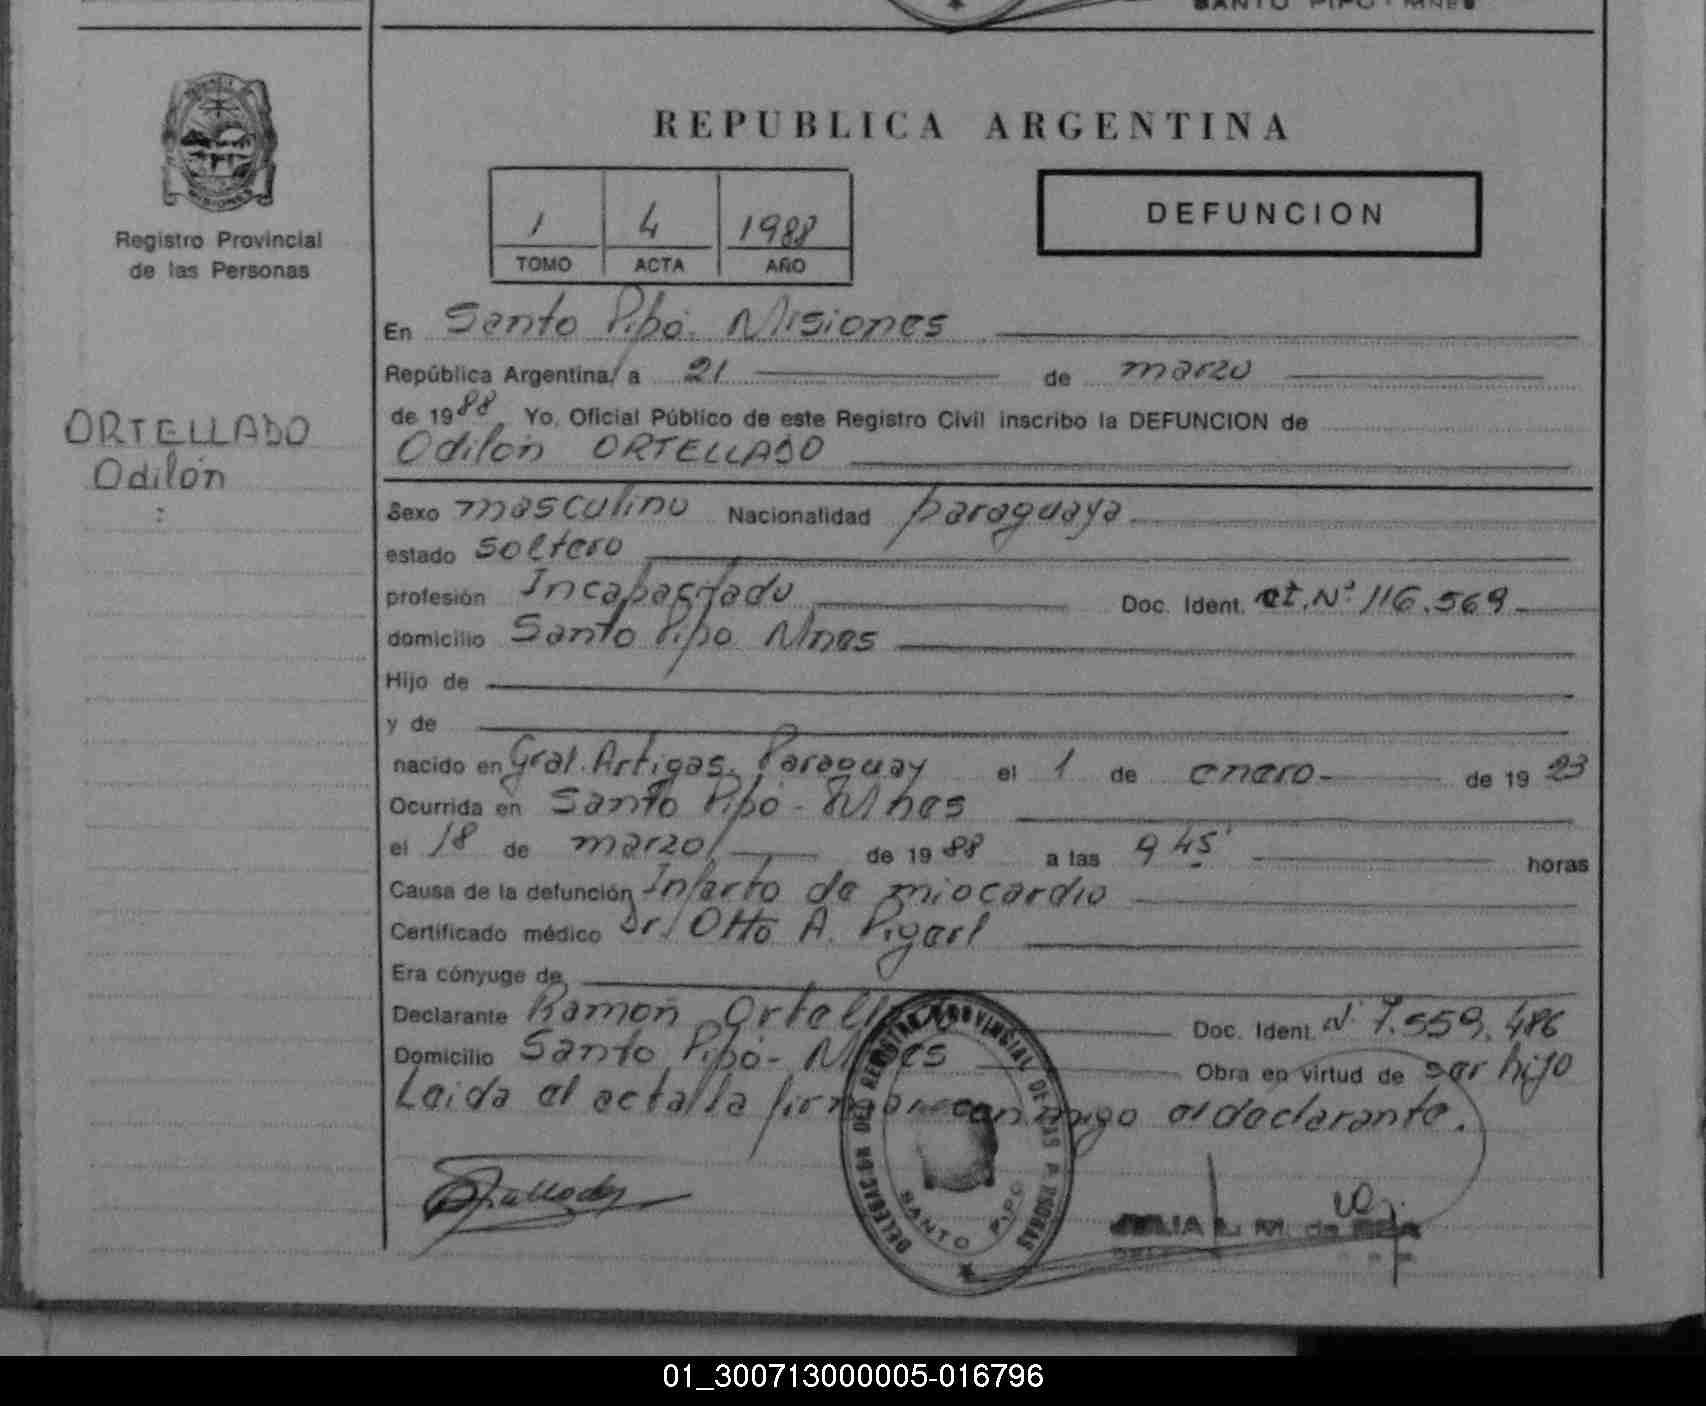 SANTO PIPO - MNES
REPUBLICA ARGENTINA
1 4 1988
TOMO ACTA AÑO
DEFUNCION
Registro Provincial
de las Personas
En Santo Pipó. Misiones
República Argentina, a 21 de marzo
de 1988 Yo, Oficial Público de este Registro Civil inscribo la DEFUNCION de
ORTELLADO
Odilón
Odilón ORTELLADO
Sexo masculino Nacionalidad paraguaya
estado soltero
profesión Incapacitado Doc. Ident. et. Nº 116.569
domicilio Santo Pipo Mnes
Hijo de
y de
nacido en Gral. Artigas. Paraguay el 1 de enero de 1923
Ocurrida en Santo Pipó - Mnes
el 18 de marzo de 1988 a las 9 45 horas
Causa de la defunción Infarto de miocardio
Certificado médico Dr. Otto A.
Era cónyuge de
Declarante Ramón Doc. Ident. Nº 7.559.486
Domicilio Santo Pipó - Mnes Obra en virtud de ser hijo
Leida el acta la firma conmigo el declarante.
DELEGACION DEL REGISTRO PROVINCIAL DE LAS PERSONAS
SANTO PIPO
01_300713000005-016796